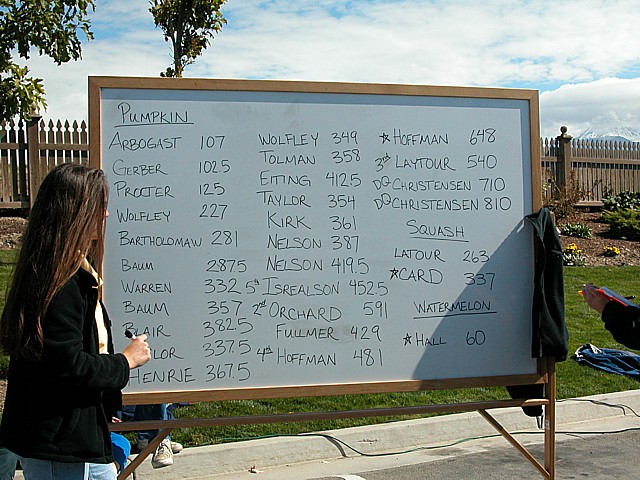 PUMPKIN
ARBOGAST 107
GERBER 102.5
PROCTER 125
WOLFLEY 227
BARTHOLOMAW 281
BAUM 287.5
WARREN 332.5
BAUM 357
BLAIR 382.5
LOR 337.5
HENRIE 367.5
WOLFLEY 349
TOLMAN 358
EITING 412.5
TAYLOR 354
KIRK 361
NELSON 387
NELSON 419.5
5th ISREALSON 452.5
2nd ORCHARD 591
FULLMER 429
4th HOFFMAN 481
★HOFFMAN 648
3rd LAYTOUR 540
DQ CHRISTENSEN 710
DQ CHRISTENSEN 810
SQUASH
LATOUR 263
★CARD 337
WATERMELON
★HALL 60